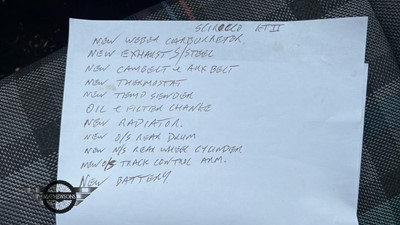 SCIROCCO GT II
NEW WEBER CARBURETTOR.
NEW EXHAUST S/STEEL
NEW CAMBELT & AUX BELT
NEW THERMOSTAT
NEW TEMP SENDER
OIL & FILTER CHANGE
NEW RADIATOR.
NEW O/S REAR DRUM
NEW N/S REAR WHEEL CYLINDER
NEW O/S TRACK CONTROL ARM.
NEW BATTERY